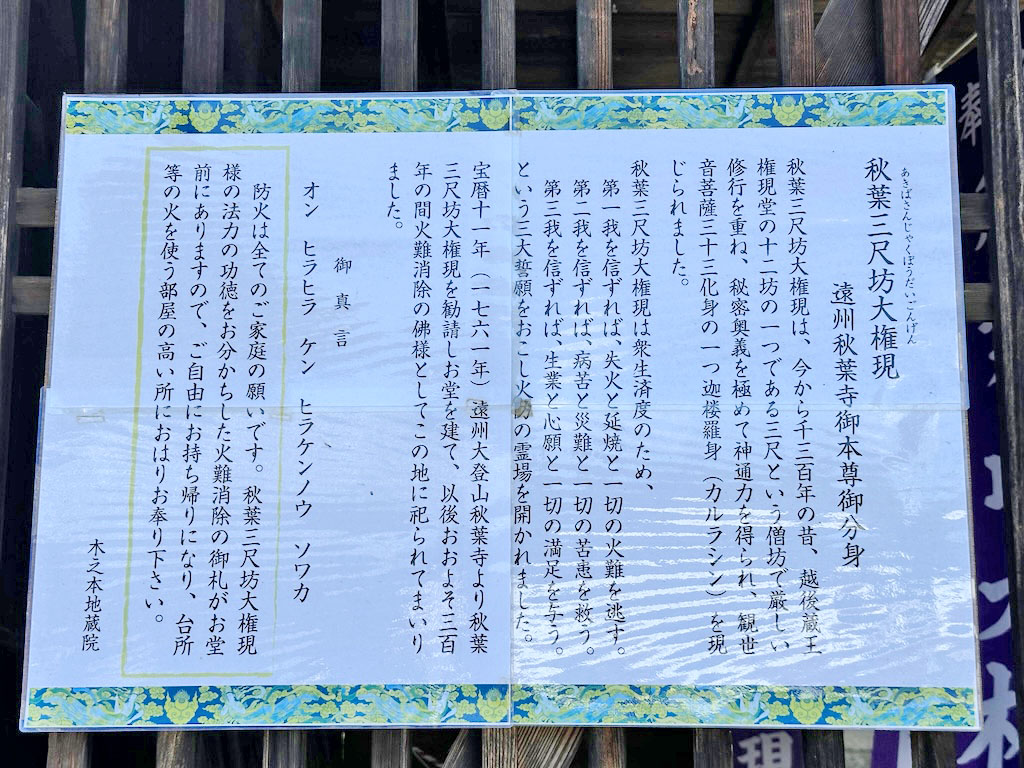 あきばさんじゃくぼうだいごんげん
秋葉三尺坊大権現
遠州秋葉寺御本尊御分身
秋葉三尺坊大権現は、今から千三百年の昔、越後蔵王
権現堂の十二坊の一つである三尺という僧坊で厳しい
修行を重ね、秘密奥義を極めて神通力を得られ、観世
音菩薩三十三化身の一つ迦楼羅身（カルラシン）を現
じられました。
秋葉三尺坊大権現は衆生済度のため、
第一我を信ずれば、失火と延焼と一切の火難を逃す。
第二我を信ずれば、病苦と災難と一切の苦患を救う。
第三我を信ずれば、生業と心願と一切の満足を与う。
という三大誓願をおこし火防の霊場を開かれました。
宝暦十一年（一七六一年）遠州大登山秋葉寺より秋葉
三尺坊大権現を勧請しお堂を建て、以後おおよそ三百
年の間火難消除の佛様としてこの地に祀られてまいり
ました。
御真言
オン ヒラヒラ ケン ヒラケンノウ ソワカ
防火は全てのご家庭の願いです。秋葉三尺坊大権現
様の法力の功徳をお分かちした火難消除の御札がお堂
前にありますので、ご自由にお持ち帰りになり、台所
等の火を使う部屋の高い所におはりお奉り下さい。
木之本地蔵院
現